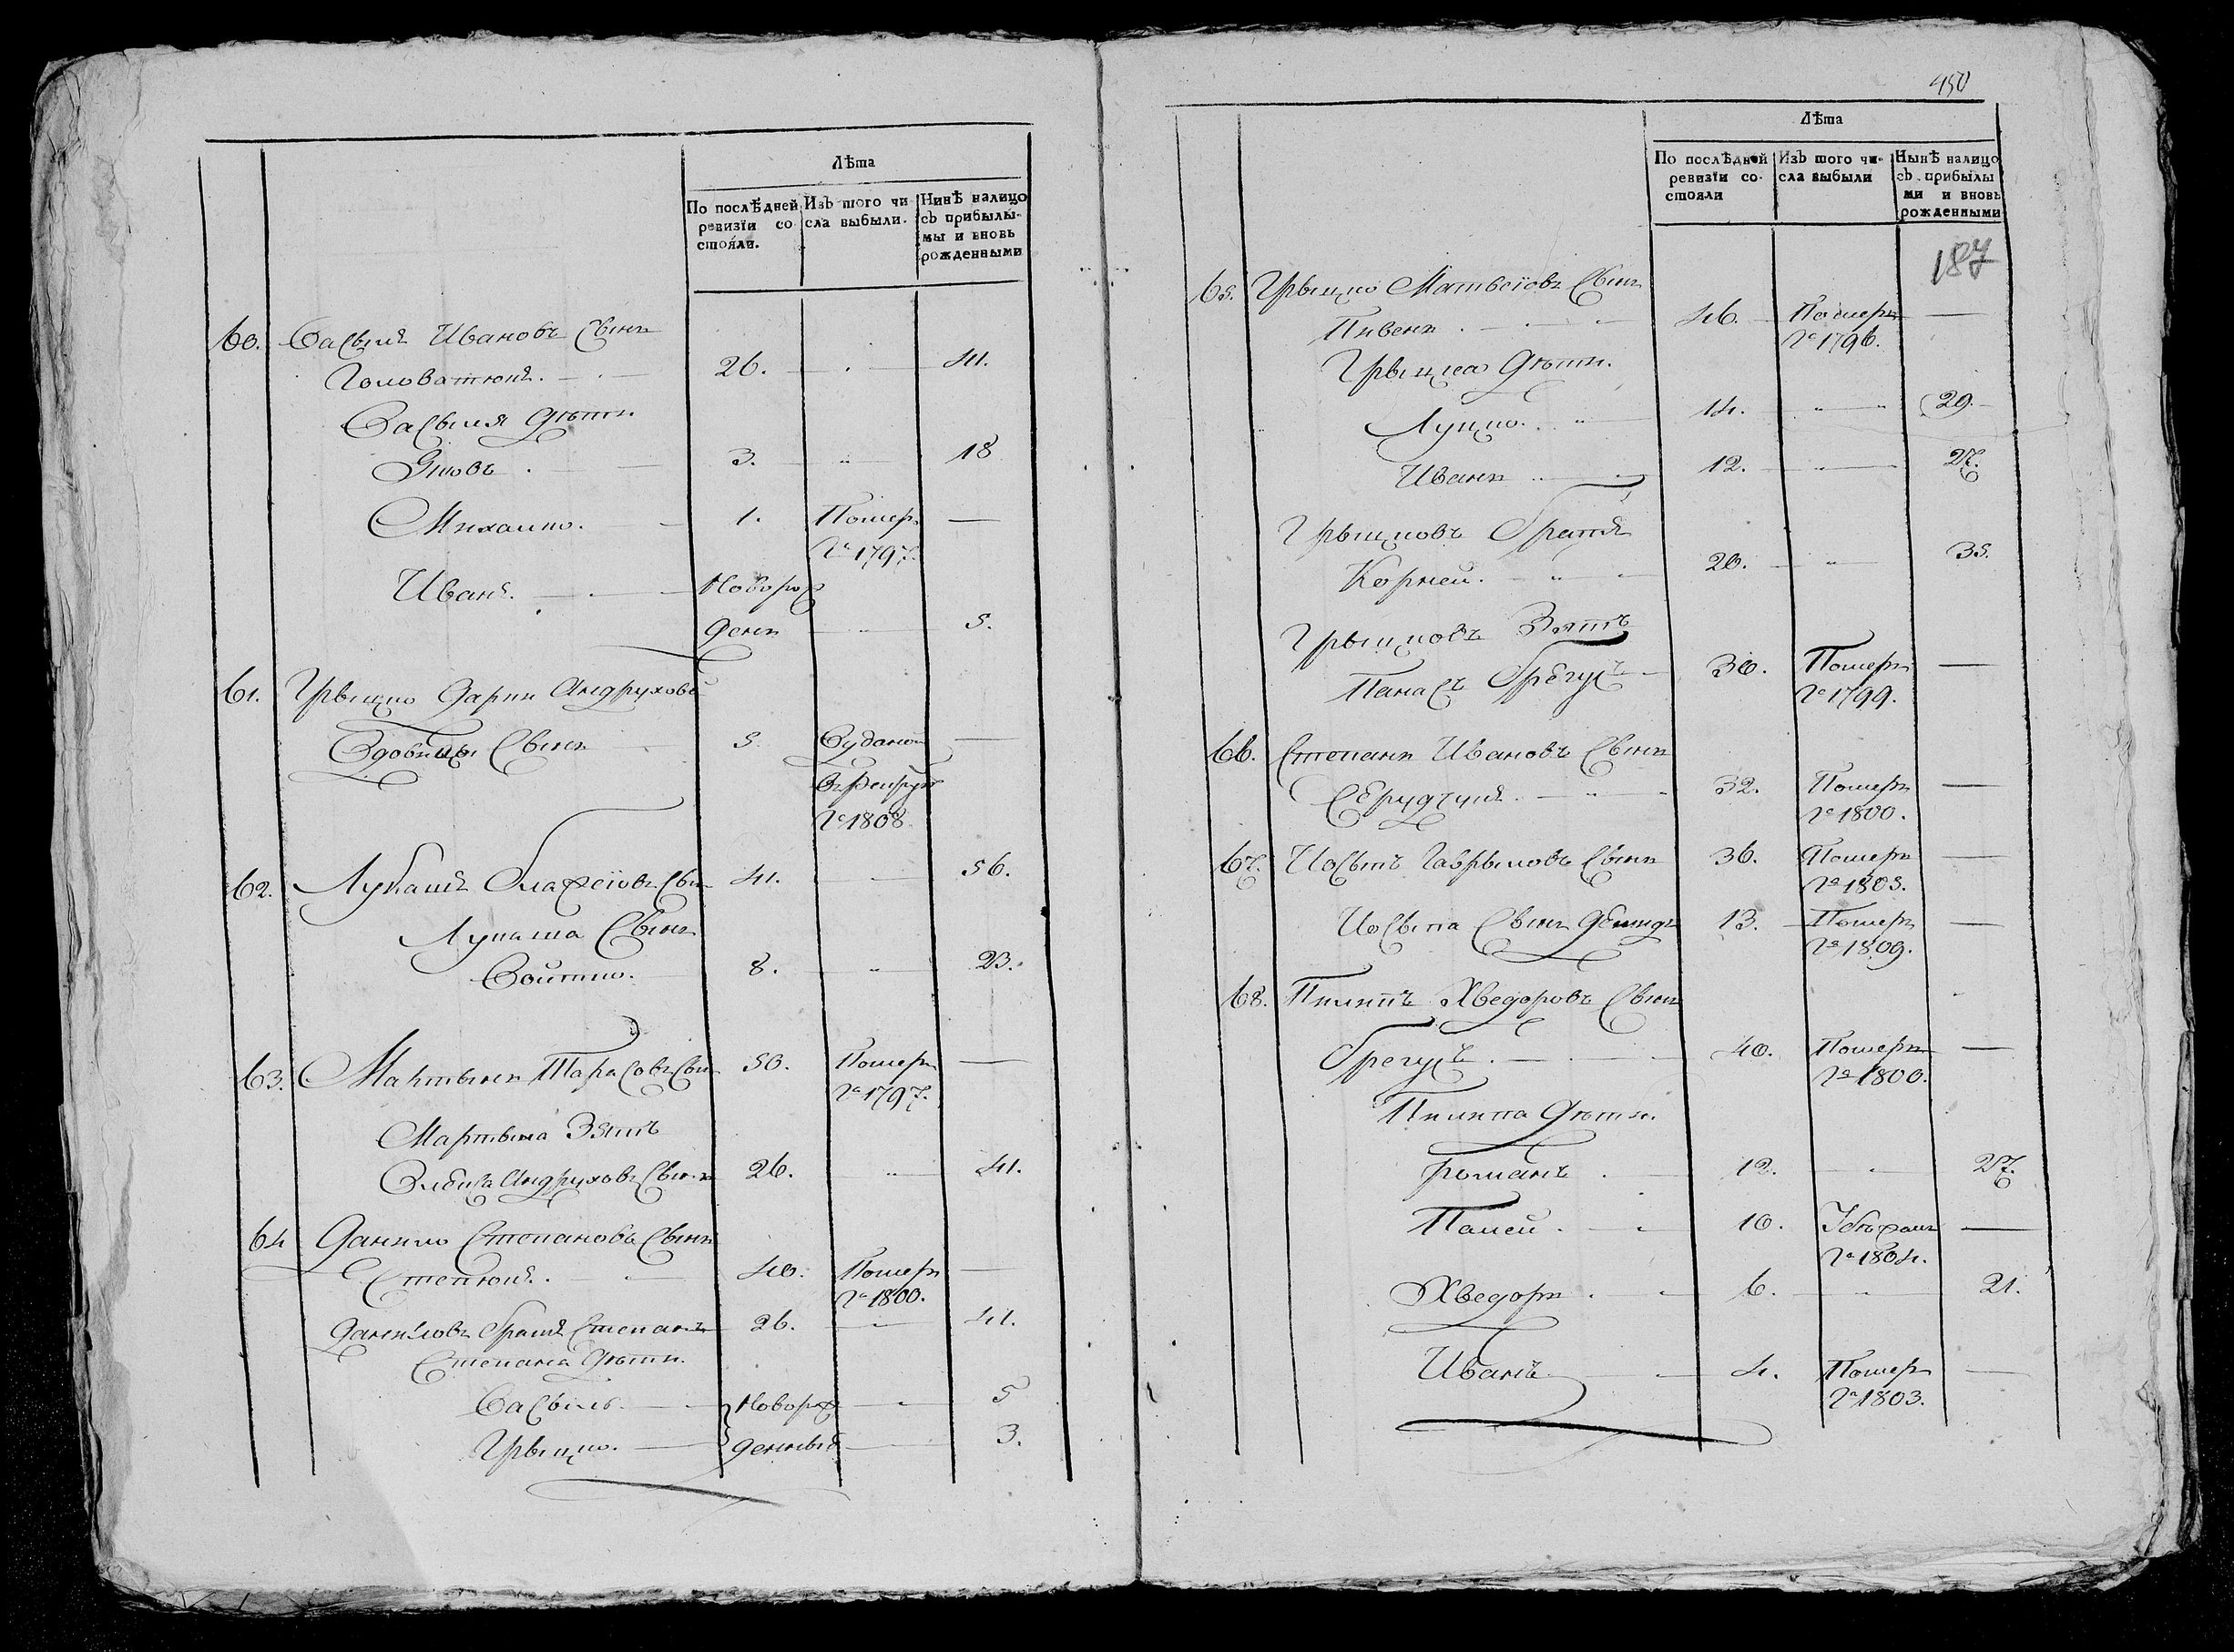 Лѣта
По послѣдней ревизїи состояли.
Изъ того числа выбыли.
Нинѣ налицо съ прибылымы и вновь рожденными
60. Василь Ивановъ Сынъ
Головатюкъ. 26. 41.
Василя Дѣти
Яковъ 3. 18
Михалко. 1. Померъ —
Го 1797.
Иванъ. Новорож
денъ 5.
61. Грыцко Дарки Андруховой
Вдовицы Сынъ 5. Отданъ —
в рекрут
Го 1808
62. Лукашъ Сы 41. 56.
Лукаша Сынъ
Войтко. 8. 23.
63. Мартынъ Тарасовъ Сы 50. Померъ —
Го 1797.
Мартына Зять
Андруховъ Сынъ 26. 41.
64 Данило Степановъ Сынъ
Степюкъ. 40. Померъ —
Го 1800.
Даниловъ братъ Степанъ 26. 41.
Степана Дѣти.
Василь Новорож 5
Грыцко. денные 3.
450
Лѣта
По послѣдней ревизїи состояли
Изъ того числа выбыли
Нынѣ налицо съ прибылыми и вновь рожденными
187
65. Грыцко Матвеїовъ Сынъ
Пивень 46. Померъ —
Го 1796.
Грыцка Дѣти.
Луцко. 14. 29.
Иванъ 12. 27.
Грыцковъ братъ
Корней. 20. 35.
Грыцковъ Зять
Панасъ Брегусъ 30. Померъ —
Го 1799.
66. Степанъ Ивановъ Сынъ
Сердчукъ. 32. Померъ —
Го 1800.
67. Йосыпъ Гаврыловъ Сынъ 36. Померъ —
Го 1805.
Йосыпа Сынъ Демидъ 13. Померъ —
Го 1809.
68. Пилипъ Хведоровъ Сынъ
Брегусъ. 40. Померъ —
Го 1800.
Пилипа Дѣти.
Романъ 12. 27.
Палей. 10. —
Го 1804.
Хведоръ 6. 21.
Иванъ 4. Померъ —
Го 1803.